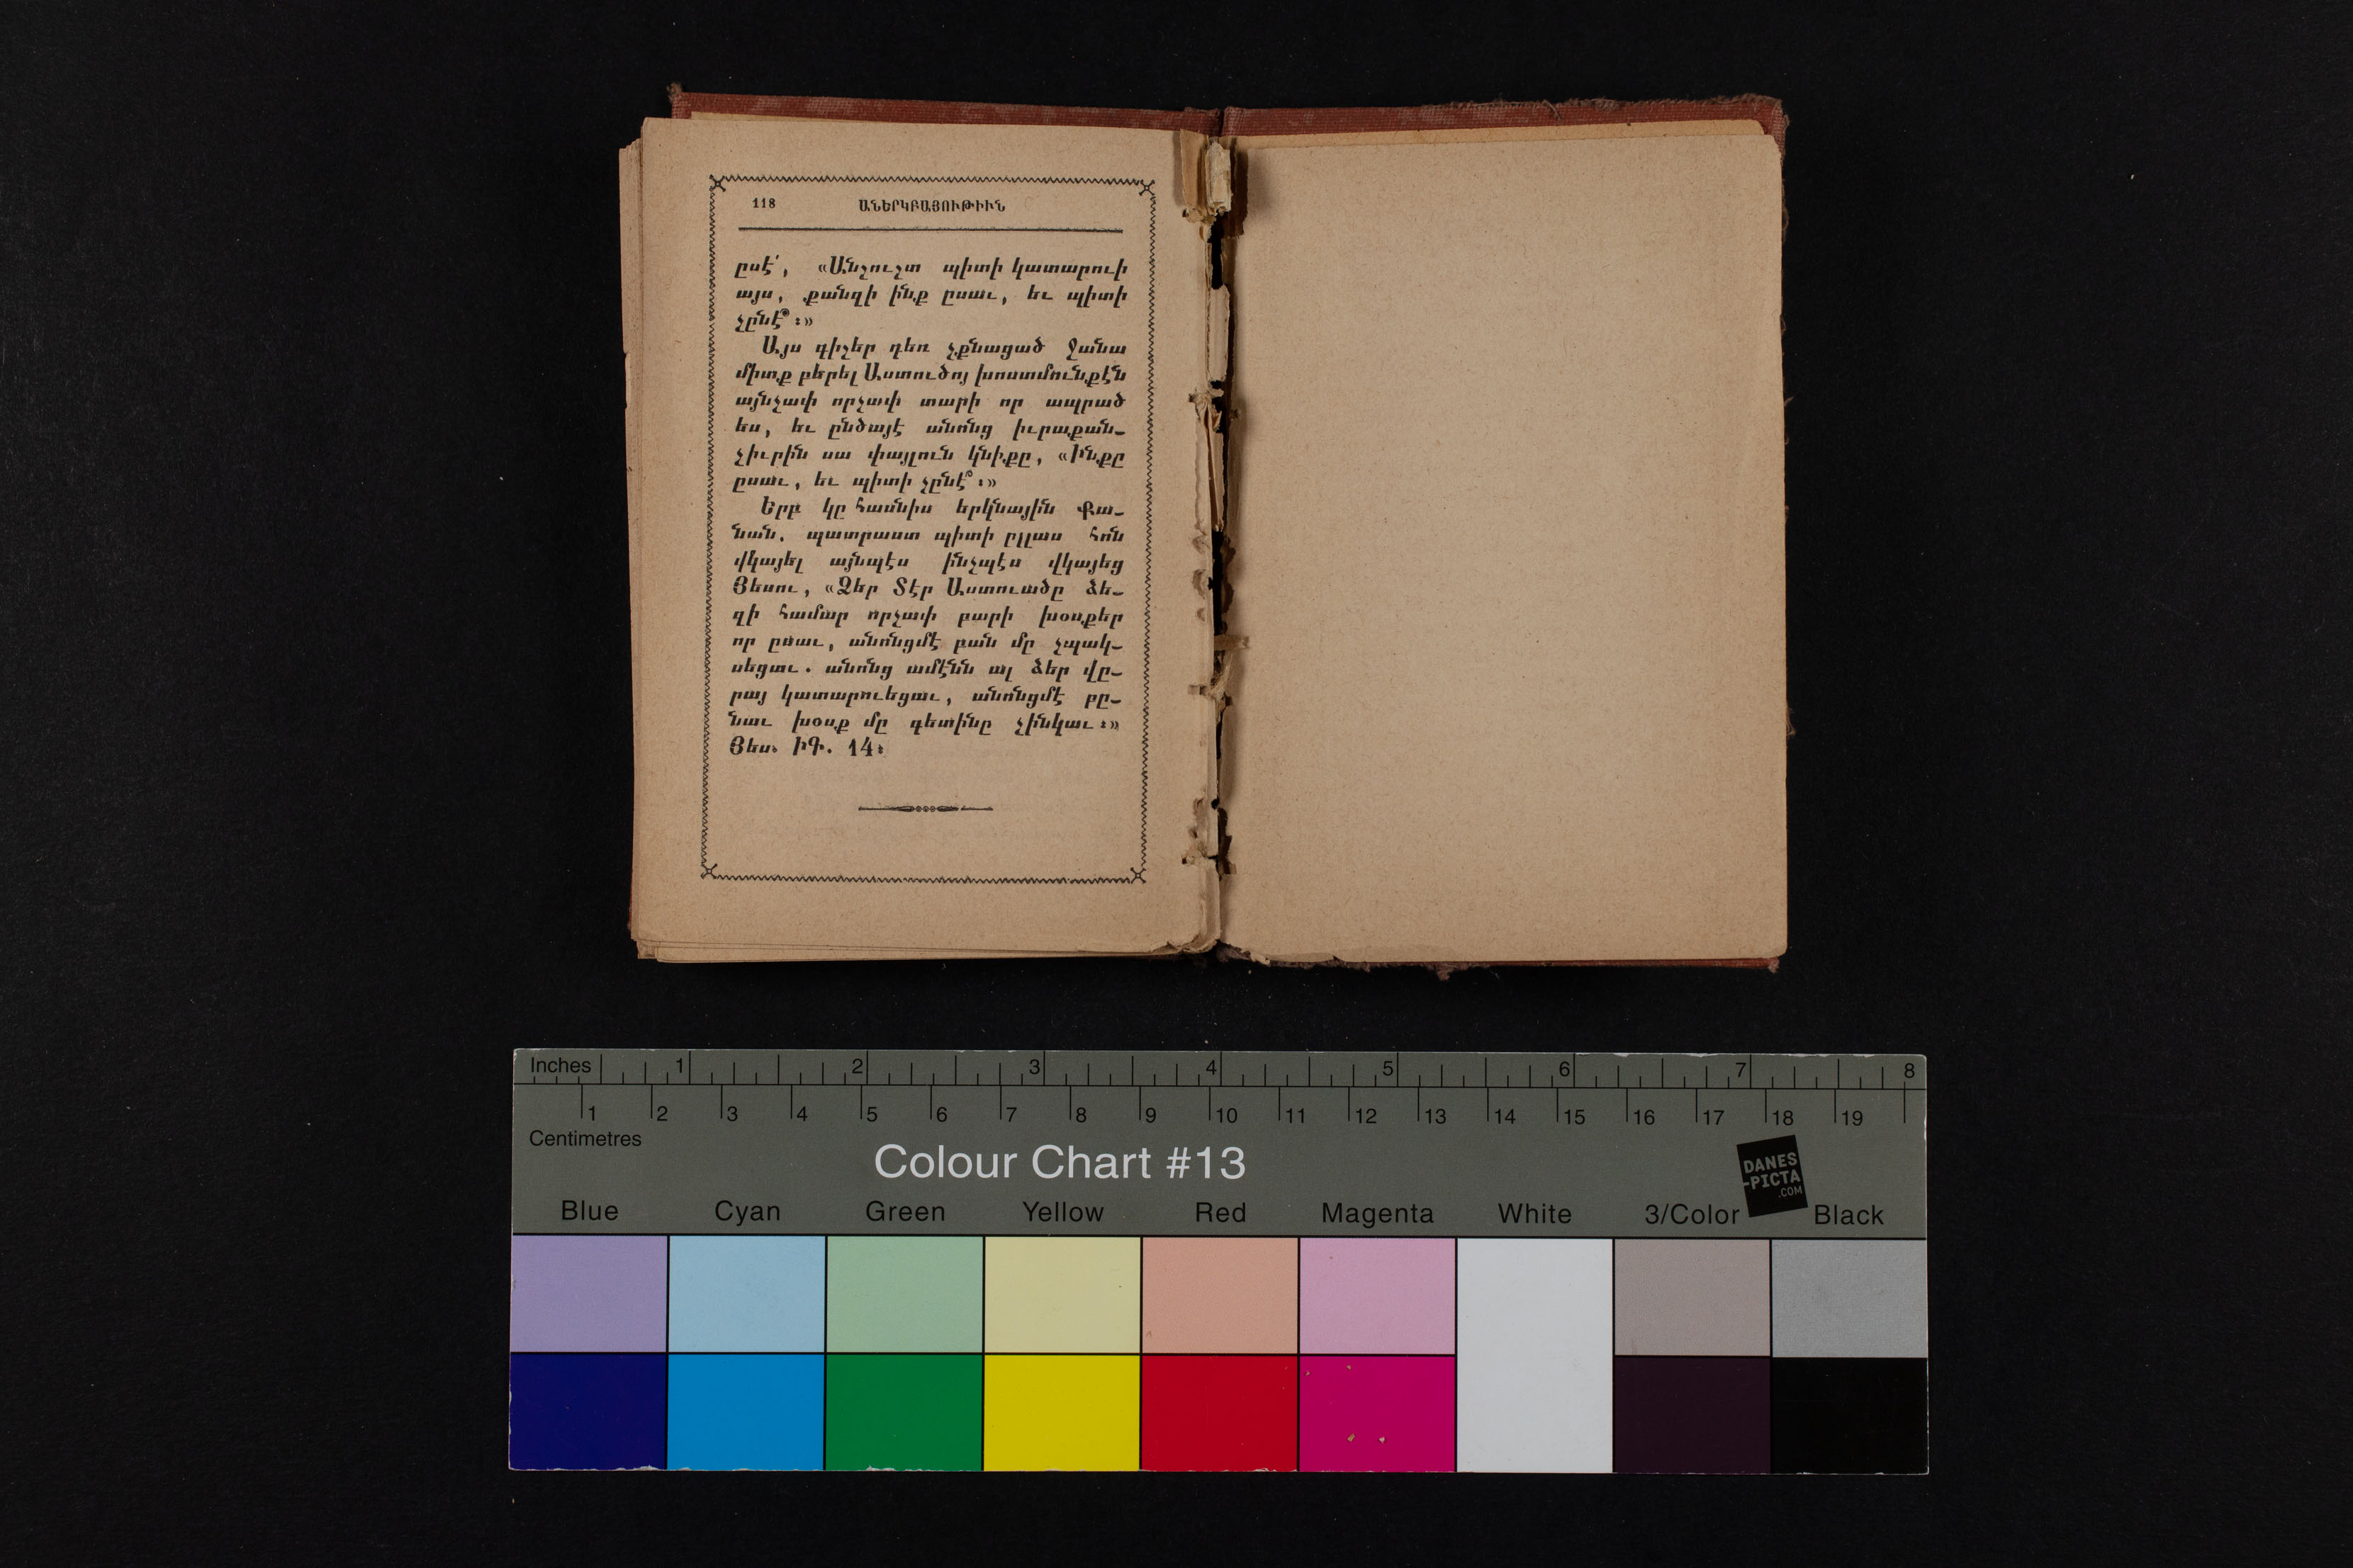 118 ԱՆԵՐԿԲԱՅՈՒԹԻՒՆ
ըսէ՛, «Անշուշտ պիտի կատարուի
այս, քանզի ինք ըսաւ, եւ պիտի
չընէ՞ ։»
Այս գիշեր դեռ չքնացած Ջանա
միտք բերել Աստուծոյ խոստմունքէն
այնչափ որչափ տարի որ ապրած
ես, եւ ընծայէ անոնց իւրաքան–
չիւրին սա փայլուն կնիքը, «Ինքը
ըսաւ, եւ պիտի չընէ՞ ։»
Երբ կը հասնիս երկնային Քա–
նան. պատրաստ պիտի ըլլաս հոն
վկայել այնպէս ինչպէս վկայեց
Յեսու, «Ձեր Տէր Աստուածը ձե–
զի համար որչափ բարի խօսքեր
որ ըսաւ, անոնցմէ բան մը չպակ–
սեցաւ. անոնց ամէնն ալ ձեր վը–
րայ կատարուեցաւ, անոնցմէ բը–
նաւ խօսք մը գետինը չինկաւ։»
Յես. ԻԳ. 14։
Inches 1 2 3 4 5 6 7 8
1 2 3 4 5 6 7 8 9 10 11 12 13 14 15 16 17 18 19
Centimetres
Colour Chart #13
DANES
-PICTA
.COM
Blue Cyan Green Yellow Red Magenta White 3/Color Black